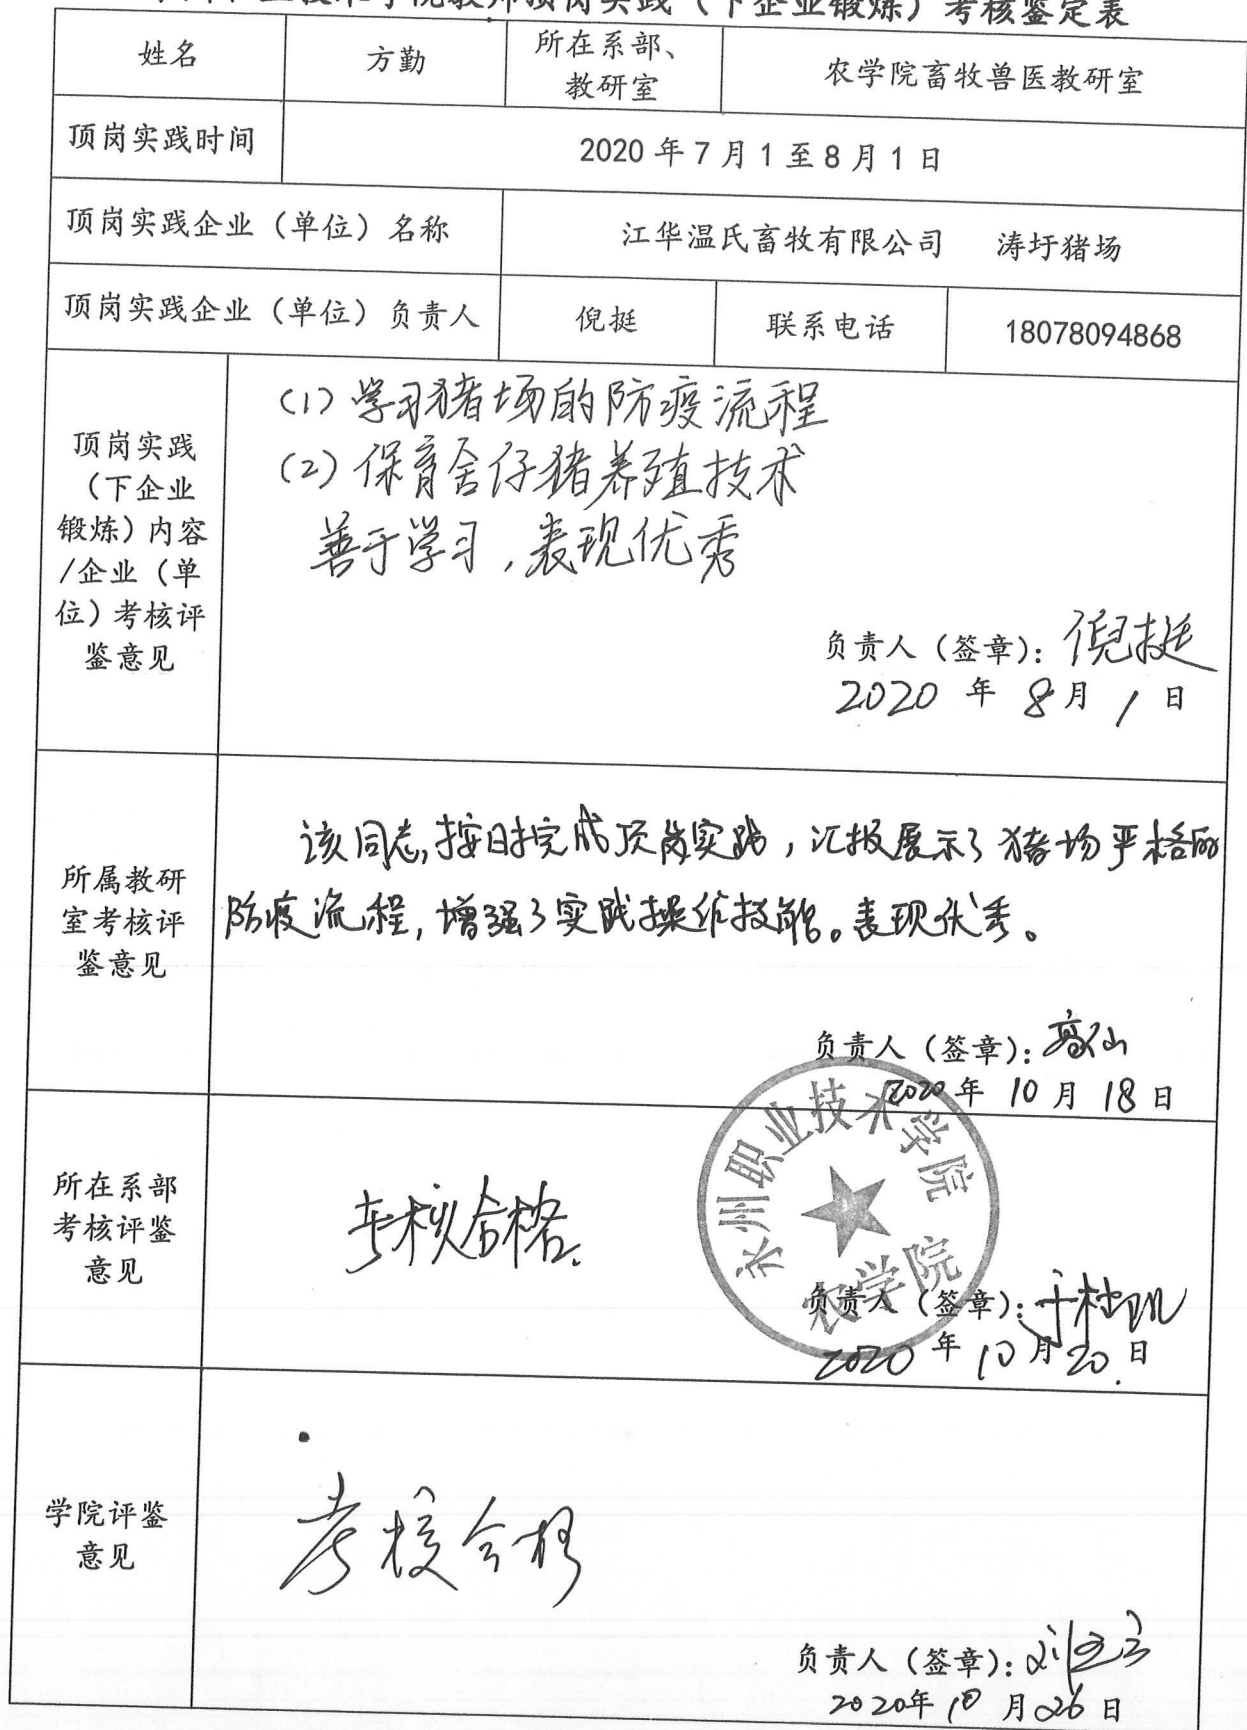 技术学院教师顶岗实践（下企业锻炼）考核鉴定表
姓名 方勤 所在系部、教研室 农学院畜牧兽医教研室
顶岗实践时间 2020年7月1至8月1日
顶岗实践企业（单位）名称 江华温氏畜牧有限公司 涛圩猪场
顶岗实践企业（单位）负责人 倪挺 联系电话 18078094868
顶岗实践
（下企业
锻炼）内容
/企业（单
位）考核评
鉴意见
(1) 学习猪场的防疫流程
(2) 保育舍仔猪养殖技术
善于学习，表现优秀
负责人（签章）：倪挺
2020 年 8 月 1 日
所属教研
室考核评
鉴意见
该同志，按时完成顶岗实践，汇报展示了猪场严格的
防疫流程，增强了实践操作技能。表现优秀。
负责人（签章）：高仙
2020年 10 月 18 日
所在系部
考核评鉴
意见
考核合格.
永州职业技术学院
农学院
负责人（签章）：
2020 年 10 月 20 日
学院评鉴
意见
考核合格
负责人（签章）：
2020年 10 月 26 日